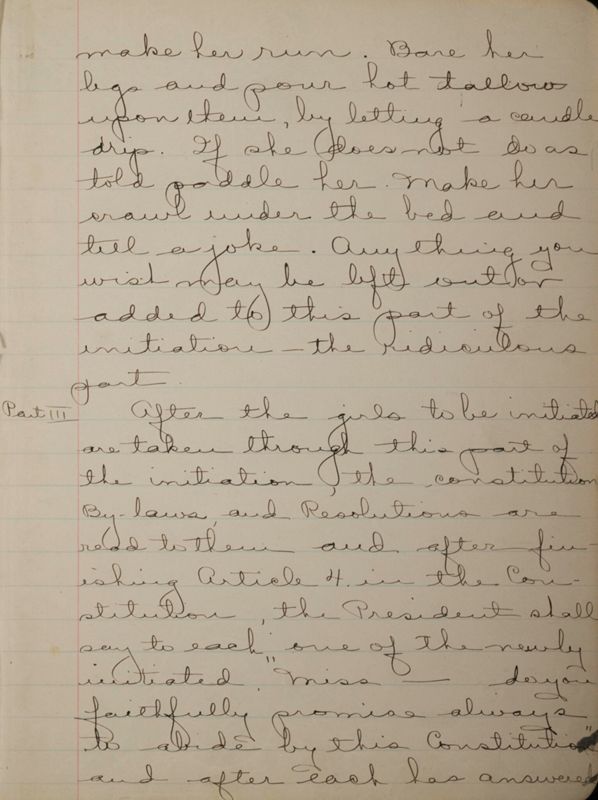 make her run. Bare her
legs and pour hot tallow
upon them, by letting a candle
drip. If she does not do as
told paddle her. Make her
crawl under the bed and
tell a joke. Anything you
wish may be left out or
added to this part of the
initiation - the ridiculous
part.
Part III After the girls to be initiated
are taken through this part of
the initiation, the constitution
By-laws, and Resolutions are
read to them and after fin-
ishing Article 4. in the Con-
stitution, the President shall
say to each one of the newly
initiated "Miss — do you
faithfully promise always
to abide by this Constitution"
and after each has answered